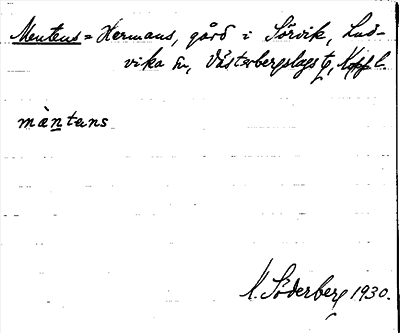 Mentens = Hermans, gård i Sörvik, Lud-
vika sn, Västerbergslags tg, Kppf l.
màntans
K. Söderberg 1930.